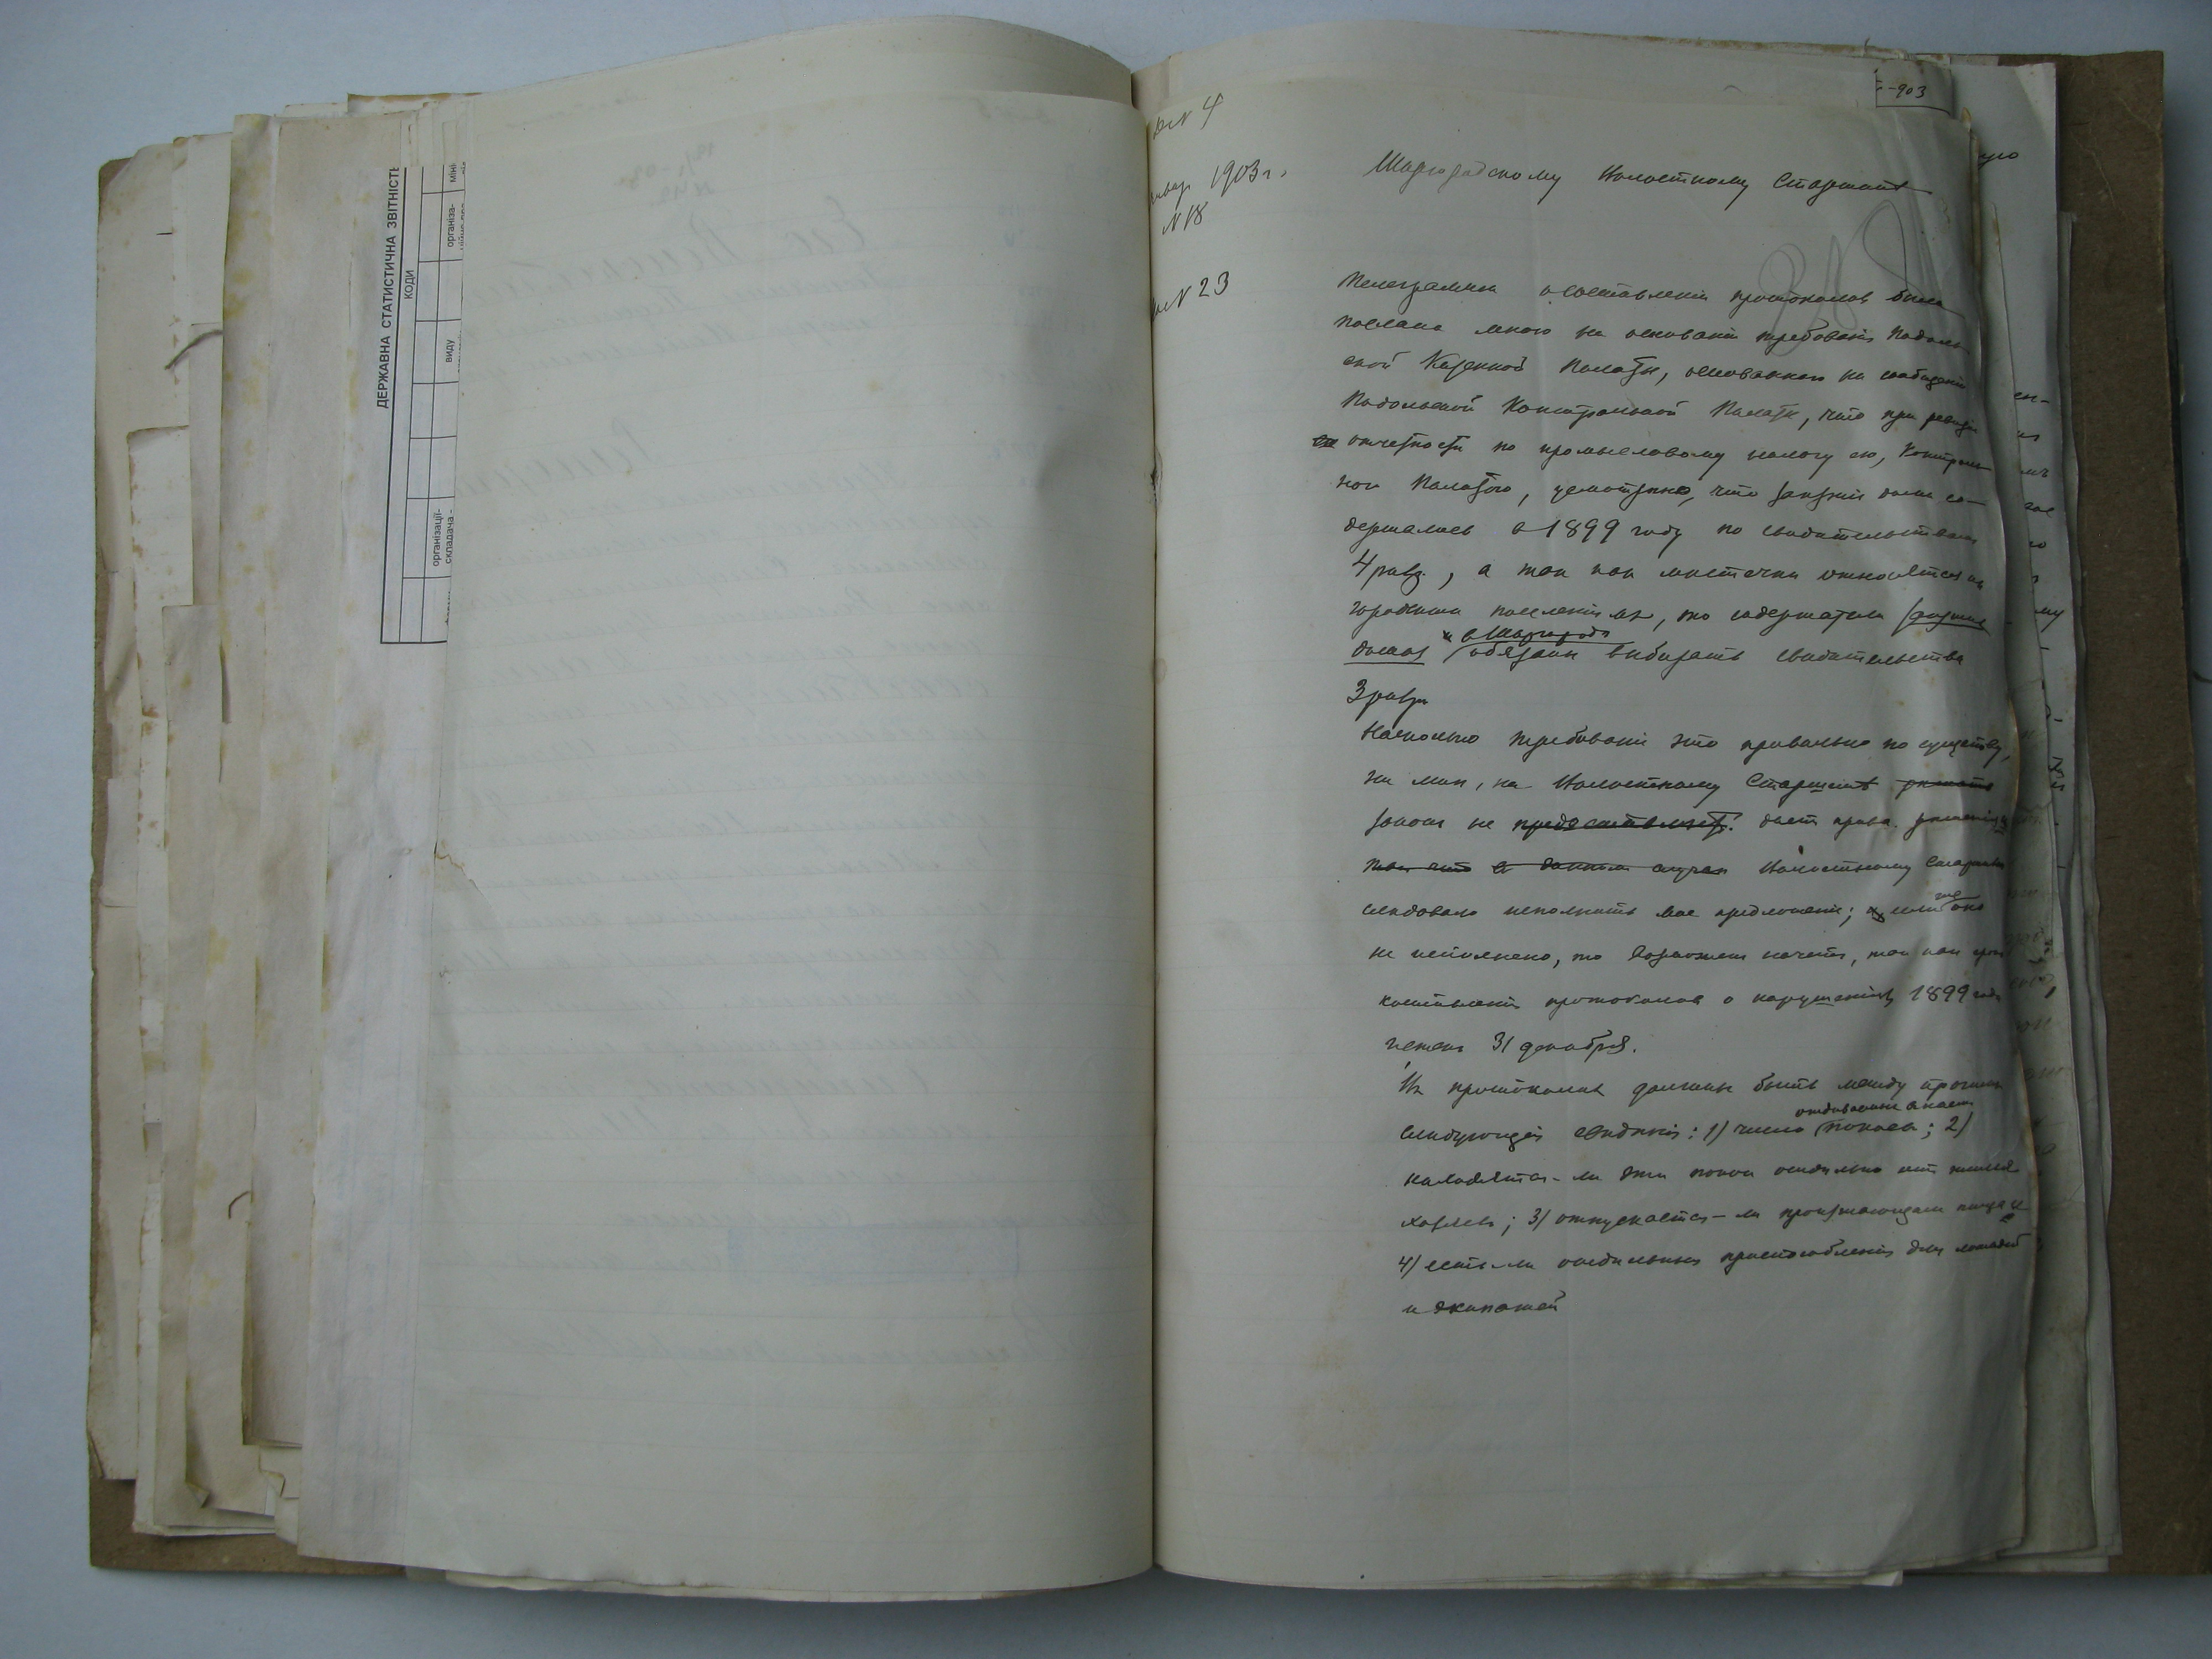 ДЕРЖАВНА СТАТИСТИЧНА ЗВІТНІСТЬ
КОДИ
організації-
складача -
виду
організа-
міні
-903
№ 4
1903 г.
№ 18
№ 23
Шаргородскому Волостному Старшинѣ
Телеграмма о составленіи протоколов была
послана мною на основаніи требованія Подоль-
ской Казенной Палаты, основаннаго на сообщеніи
Подольской Контрольной Палаты, что при ревизіи
отчетности по промысловому налогу ею, Контроль-
ною Палатою, усмотрено, что заезжіе дома со-
держались в 1899 году по свидетельствам
4 разр., а так как местечки относятся к
городским поселеніям, то содержатели заезжих
домов в Шаргороде обязаны выбирать свидетельства
3 разр.
Насколько требованіе это правильно по существу,
ни мне, ни Волостному Старшинѣ решать
закон не предоставляет. дает права.
так что в данном случае Волостному Старшине
следовало исполнить мое предложеніе; если же оно
не исполнено, то так как срок
составленія протоколов о нарушеніях 1899 года
истек 31 декабря.
В протоколах должны быть между прочим
следующія сведенія: 1) число отдаваемых в наем покоев; 2)
находятся-ли эти покои отдельно от жилья
хозяев; 3) отпускается-ли проезжающим пища и
4) есть-ли отдельныя приспособленія для лошадей
и экипажей